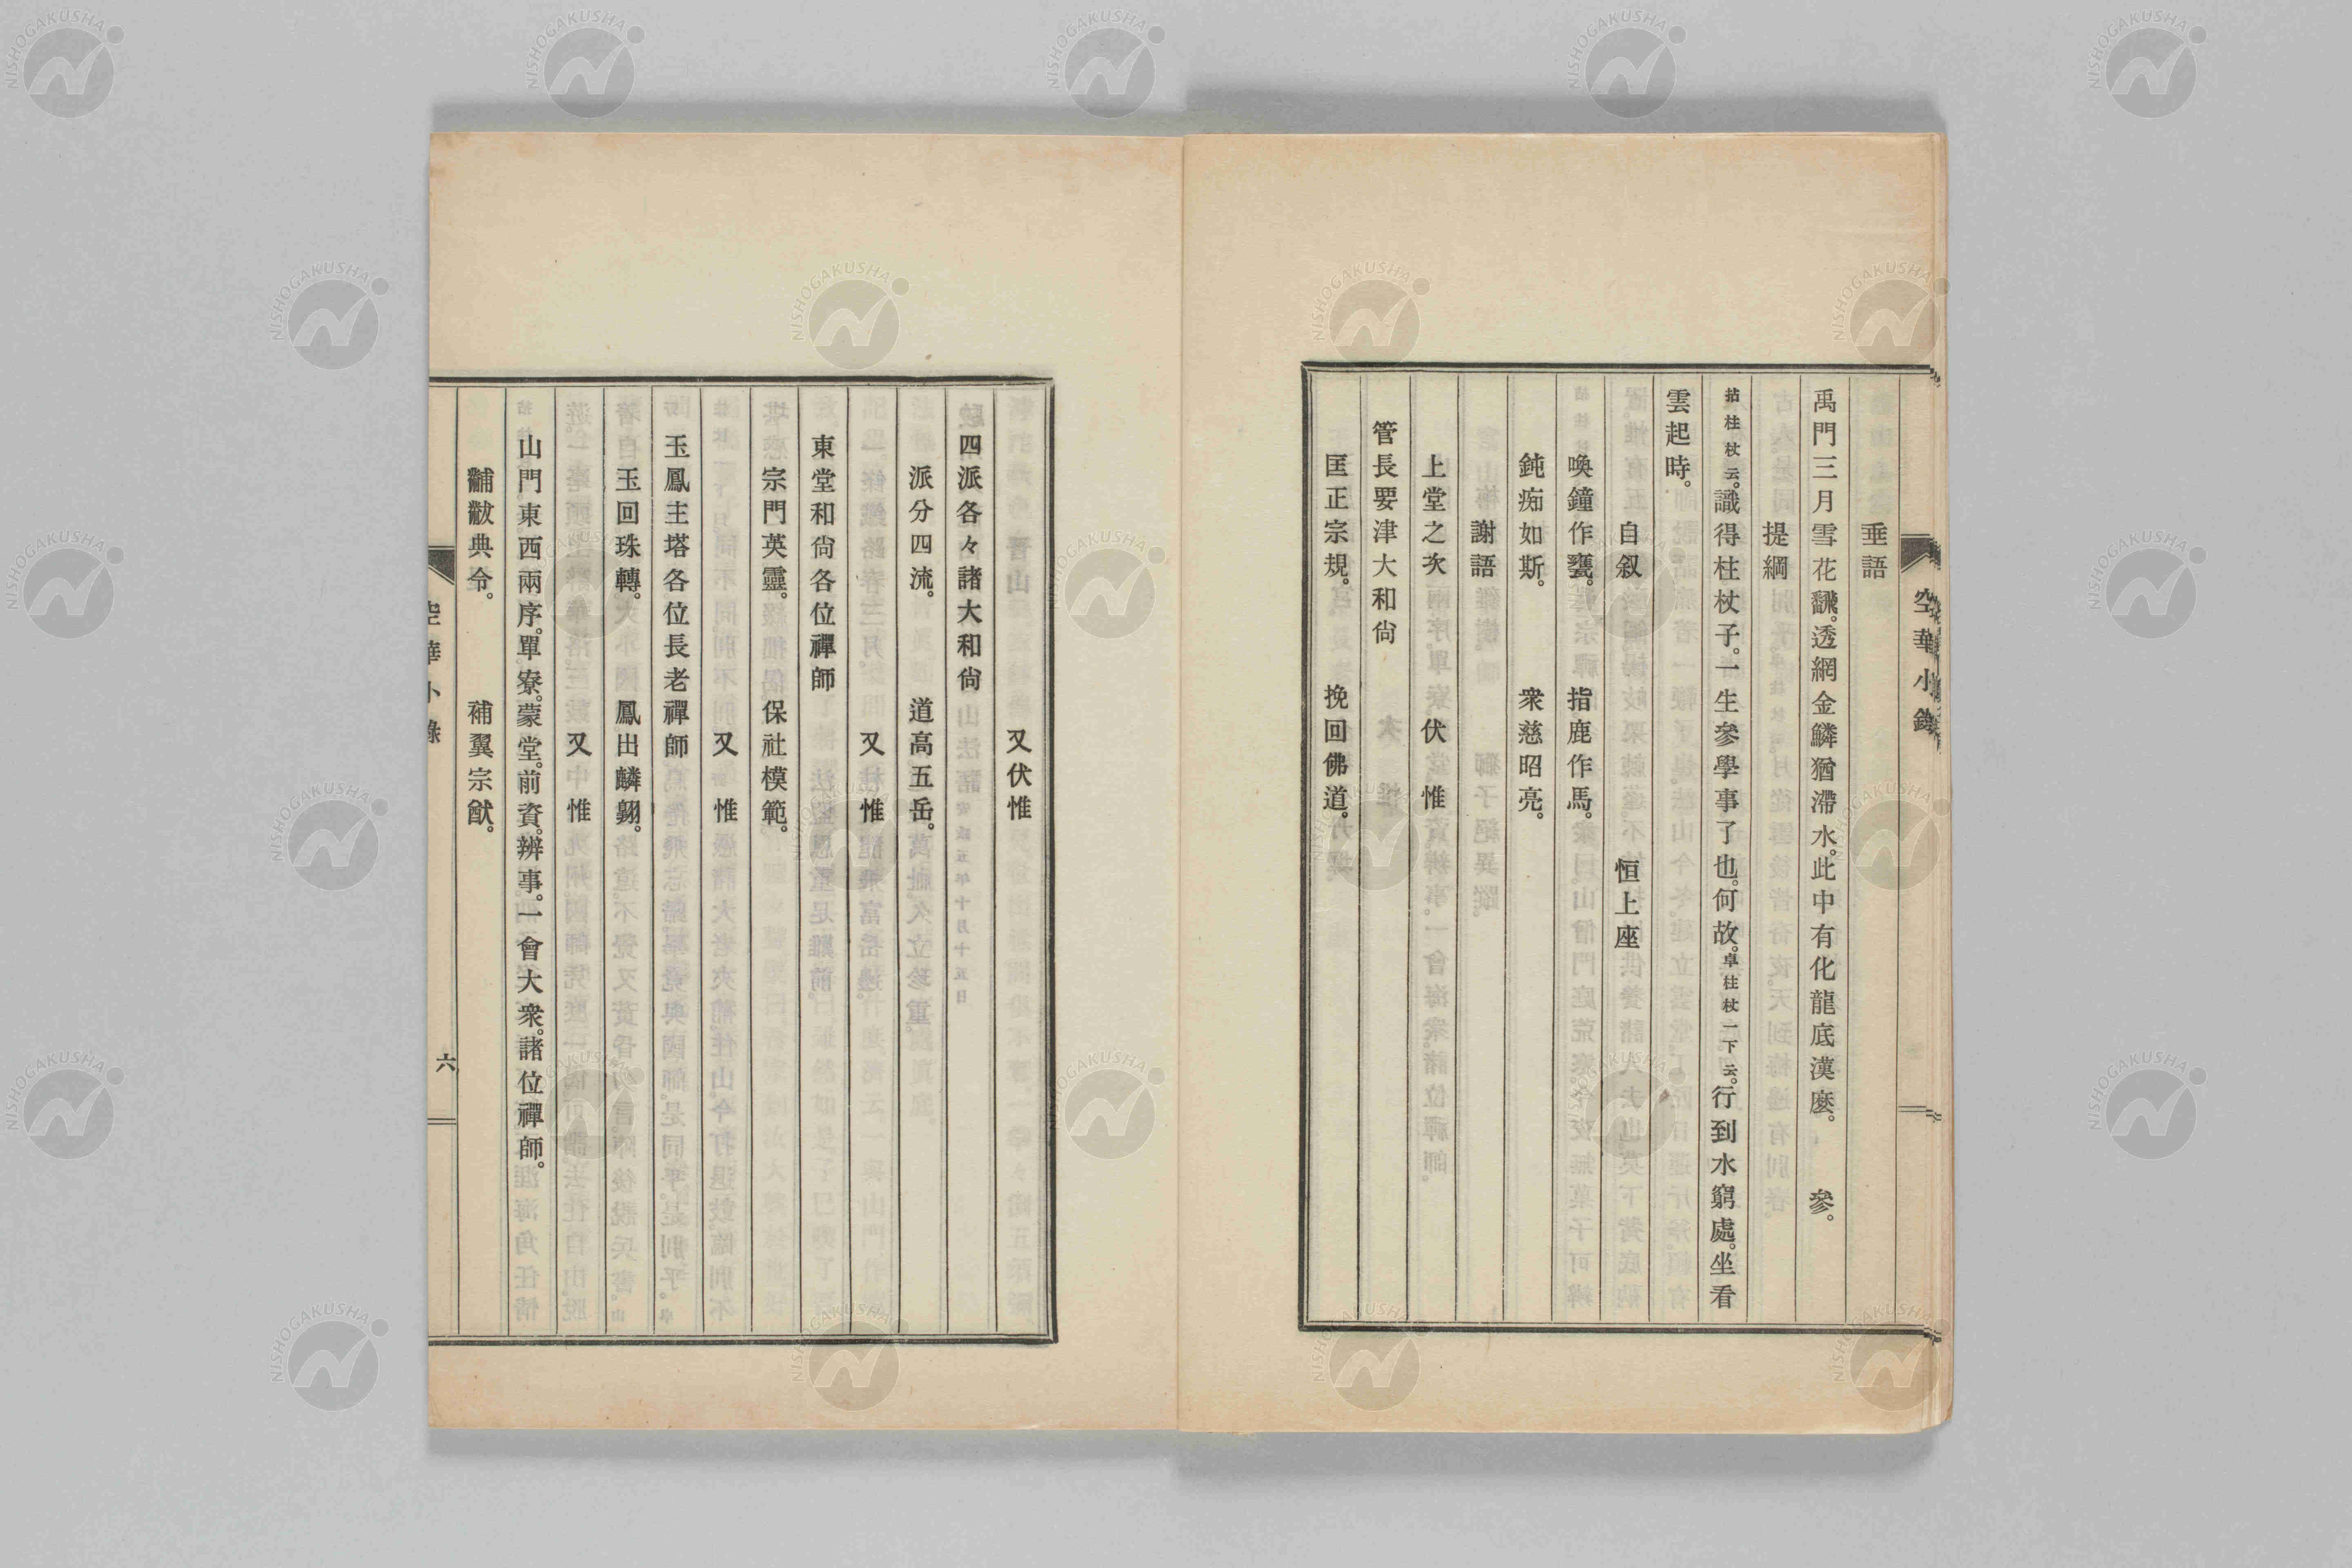 空華小錄
垂語
禹門三月雪花飜。透網金鱗猶滯水。此中有化龍底漢麽。 參。
提綱
拈柱杖云。識得柱杖子。一生參學事了也。何故。卓柱杖一下云。行到水窮處。坐看
雲起時。
自叙 恒上座
喚鐘作甕。 指鹿作馬。
鈍痴如斯。 衆慈昭亮。
謝語
上堂之次 伏惟
管長要津大和尙
匡正宗規。 挽回佛道。
又伏惟
四派各々諸大和尙
派分四流。 道高五岳。
又 惟
東堂和尙各位禪師
宗門英靈。 保社模範。
又 惟
玉鳳主塔各位長老禪師
玉回珠轉。 鳳出麟翔。
又 惟
山門東西兩序。單寮。蒙堂。前資。辨事。一會大衆。諸位禪師。
黼黻典令。 補翼宗猷。
空華小錄 六
NISHOGAKUSHA